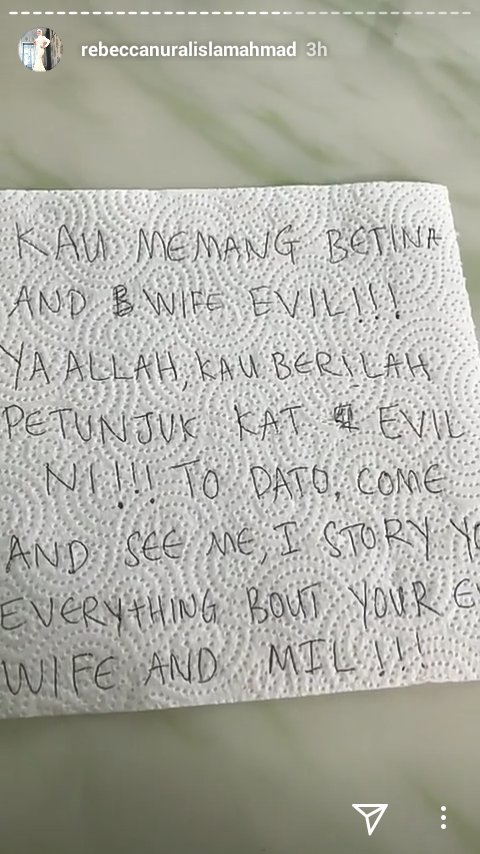 rebeccanuralislamahmad 3h
KAU MEMANG BETINA
AND WIFE EVIL!!!
YA ALLAH, KAU BERILAH
PETUNJUK KAT EVIL
NI!!! TO DATO, COME
AND SEE ME, I STORY
EVERYTHING BOUT YOUR
WIFE AND MIL!!!